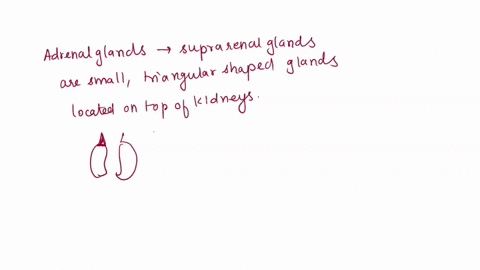 Adrenal glands → suprarenal glands
are small, triangular shaped glands
located on top of kidneys.